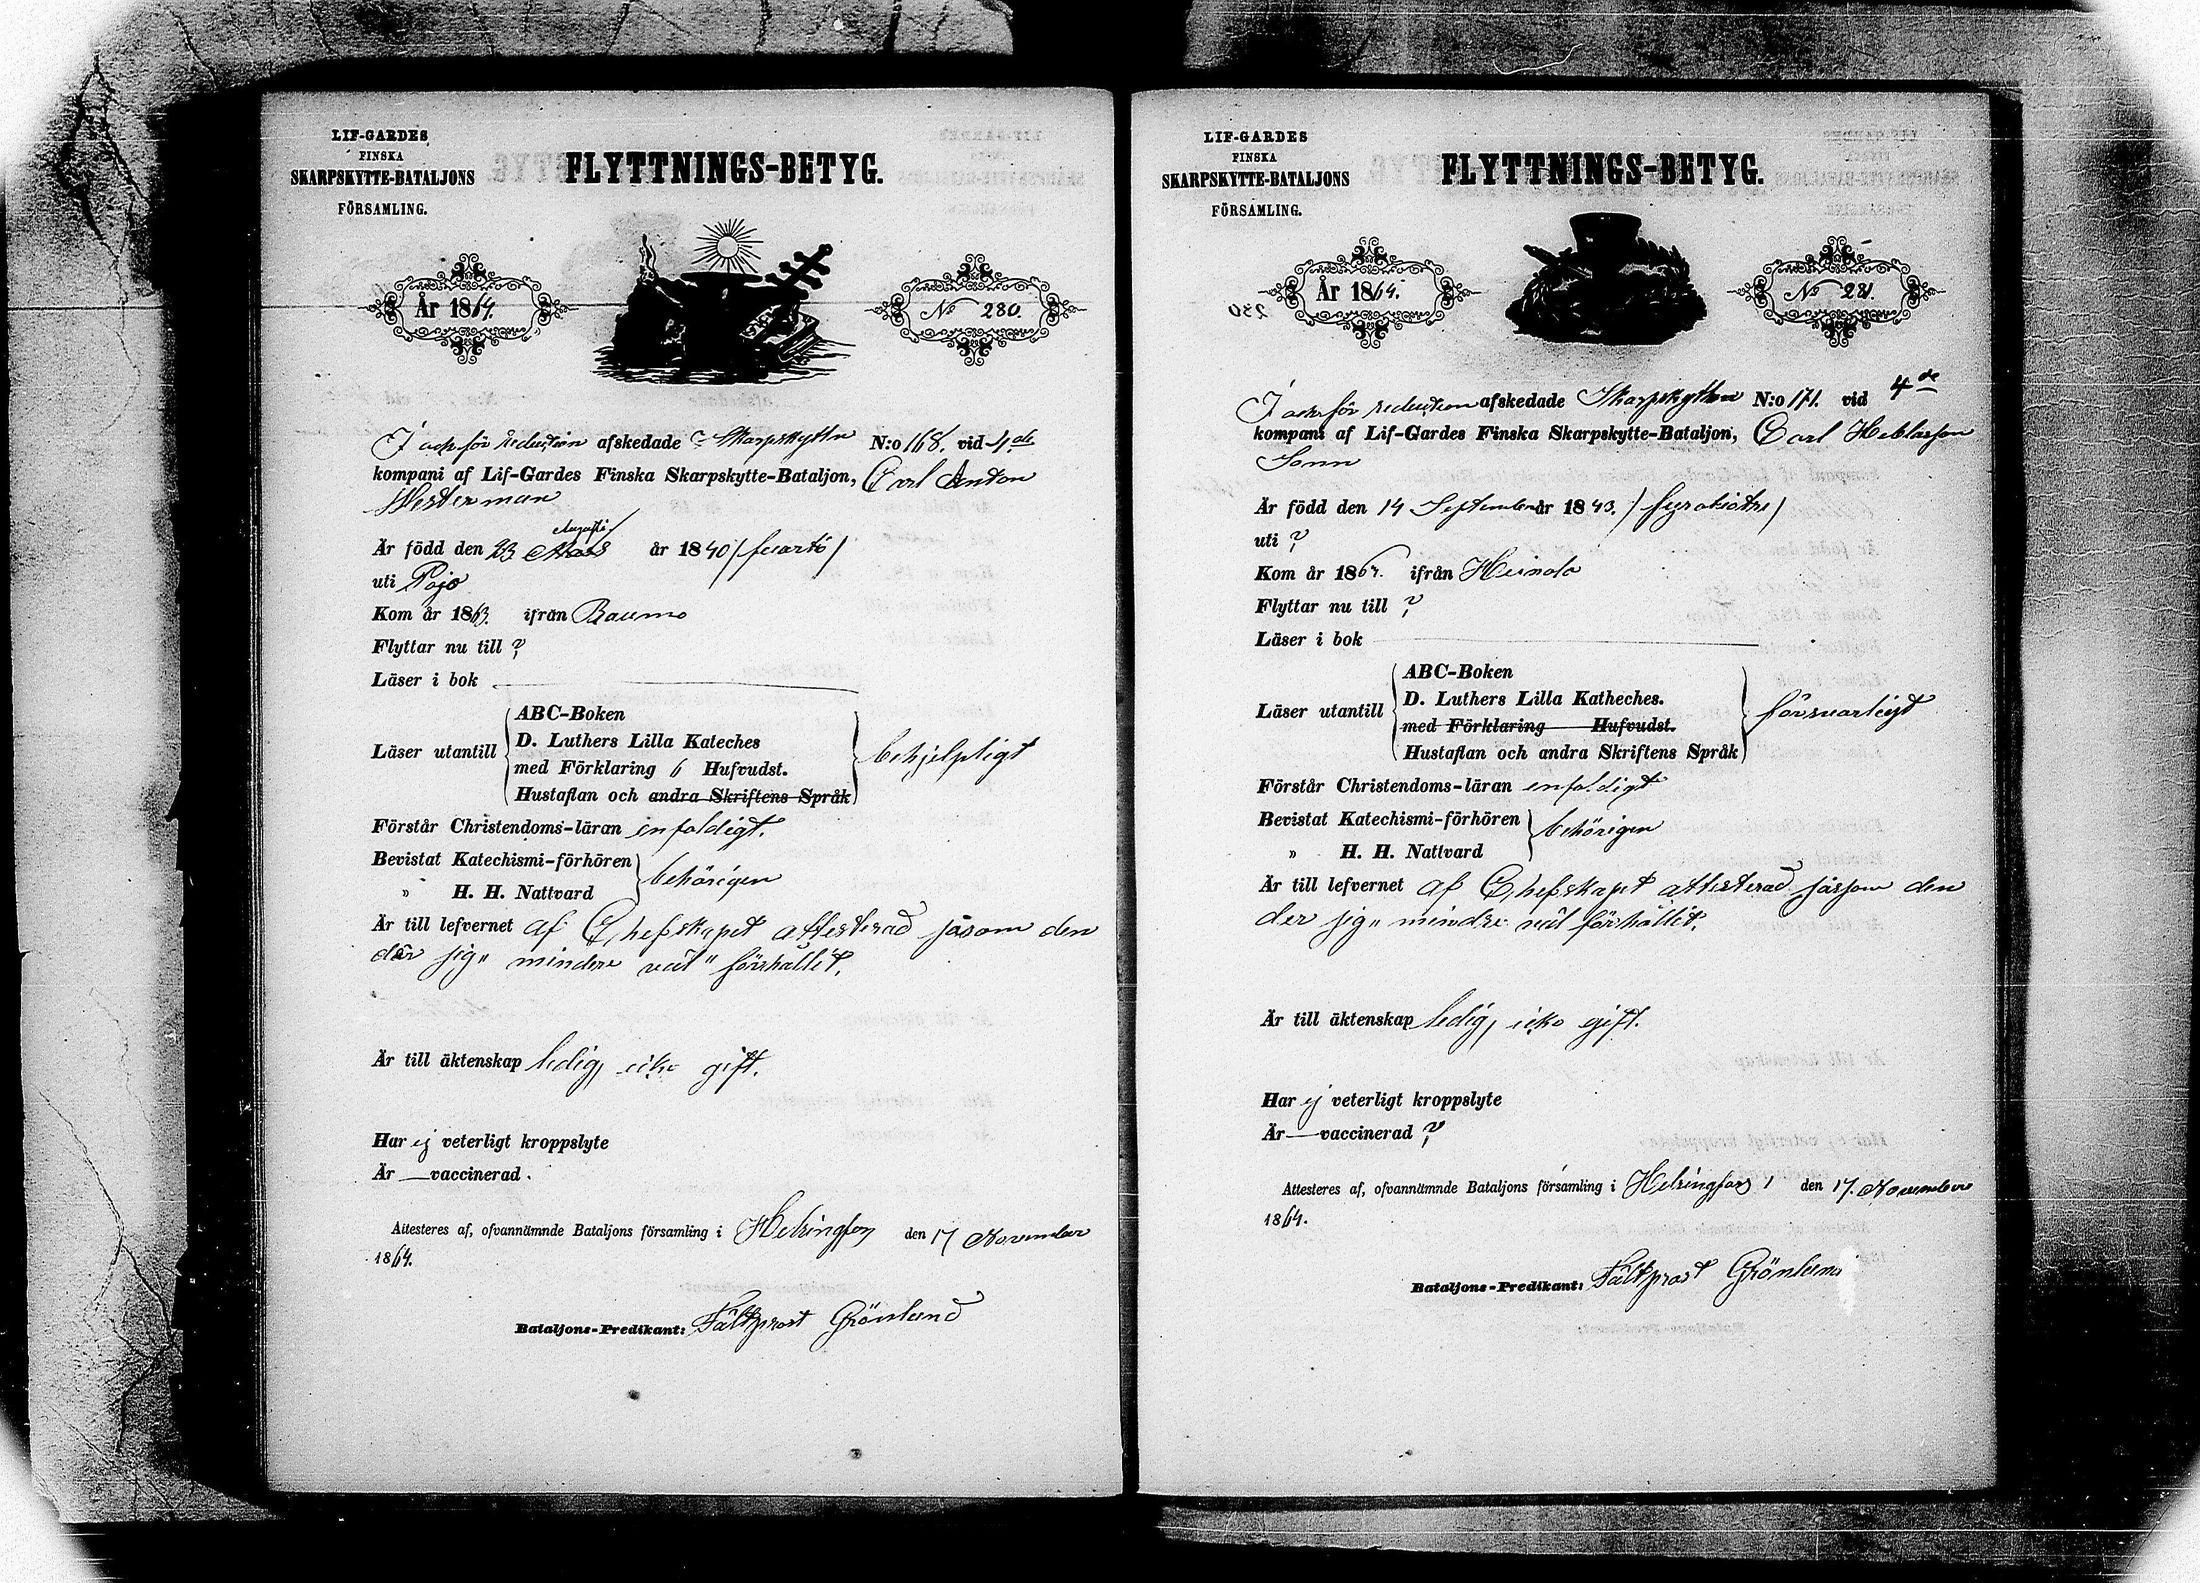 LIF-GARDES
FINSKA
SKARPSKYTTE-BATALJONS
FÖRSAMLING.
FLYTTNINGS-BETYG.
År 1864.
No 280.
afskedade Skarpskytten N:o 168. vid 4de
kompani af Lif-Gardes Finska Skarpskytte-Bataljon, Carl Anton
Westerman
Augusti
Är född den 23 år 1840
uti Pojo
Kom år 1863. ifrån Raumo
Flyttar nu till ?
Läser i bok
ABC-Boken
D. Luthers Lilla Kateches
Läser utantill
med Förklaring 6 Hufvudst.
Hustaflan och andra Skriftens Språk
behjelpligt
Förstår Christendoms-läran enfaldigt.
Bevistat Katechismi-förhören
" H. H. Nattvard
behörigen
Är till lefvernet af Chefskapet attesterad såsom den
der sig "mindre väl" förhållit.
Är till äktenskap ledig, icke gift.
Har ej veterligt kroppslyte
Är — vaccinerad.
Attesteres af, ofvannämnde Bataljons församling i Helsingfors den 17 November
1864.
Bataljons-Predikant: Fältprost Grönlund
LIF-GARDES
FINSKA
SKARPSKYTTE-BATALJONS
FÖRSAMLING.
FLYTTNINGS-BETYG.
År 1864.
No 281.
afskedade Skarpskytten N:o 171. vid 4de
kompani af Lif-Gardes Finska Skarpskytte-Bataljon, Carl
Är född den 14 September år 1843.
uti ?
Kom år 186 ifrån Heinola
Flyttar nu till ?
Läser i bok
ABC-Boken
D. Luthers Lilla Katheches.
Läser utantill
med Förklaring Hufvudst.
Hustaflan och andra Skriftens Språk
försvarligt
Förstår Christendoms-läran enfaldigt
Bevistat Katechismi-förhören
" H. H. Nattvard
behörigen
Är till lefvernet af Chefskapet attesterad såsom den
der sig "mindre väl förhållit.
Är till äktenskap ledig, icke gift.
Har ej veterligt kroppslyte
Är — vaccinerad ?
Attesteres af, ofvannämnde Bataljons församling i Helsingfors den 17. November
1864.
Bataljons-Predikant: Fältprost Grönlund